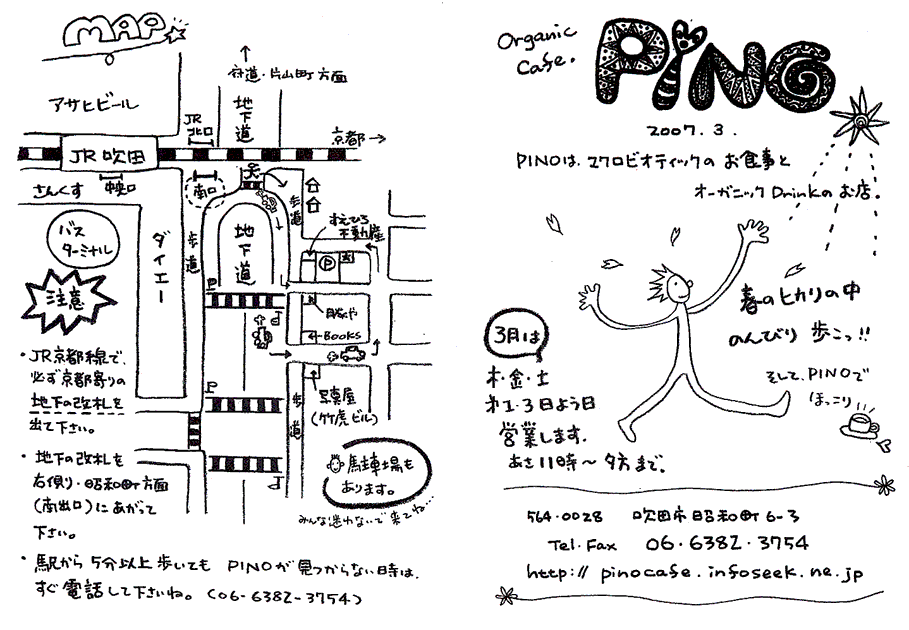 MAP
府道・片山町方面
アサヒビール
地下道
JR
北口
京都→
JR 吹田
中央口
さんくす
南口
歩道
バス
ターミナル
ダイエー
歩道
地下道
すえひろ
不動産
P
注意
服や
←Books
写真屋
(竹虎ビル)
歩道
・JR京都線で、
必ず京都寄りの
地下の改札を
出て下さい。
・地下の改札を
右側り・昭和町方面
(南出口)にあがって
下さい。
駐車場も
あります。
みんな迷わないで来てね…
・駅から 5分以上歩いても PINOが見つからない時は、
すぐ電話して下さいね。(06-6382-3754)
Organic
Cafe.
PiNO
2007.3.
PINOは、マクロビオティックの お食事と
オーガニック Drinkの お店。
春のヒカリの中
のんびり 歩こっ!!
3月は
木・金・土
第1・3日よう日
営業します。
あさ11時～夕方まで。
そして、PINOで
ほっこり
564-0028 吹田市昭和町6-3
Tel・Fax 06・6382・3754
http:// pinocafe.infoseek.ne.jp